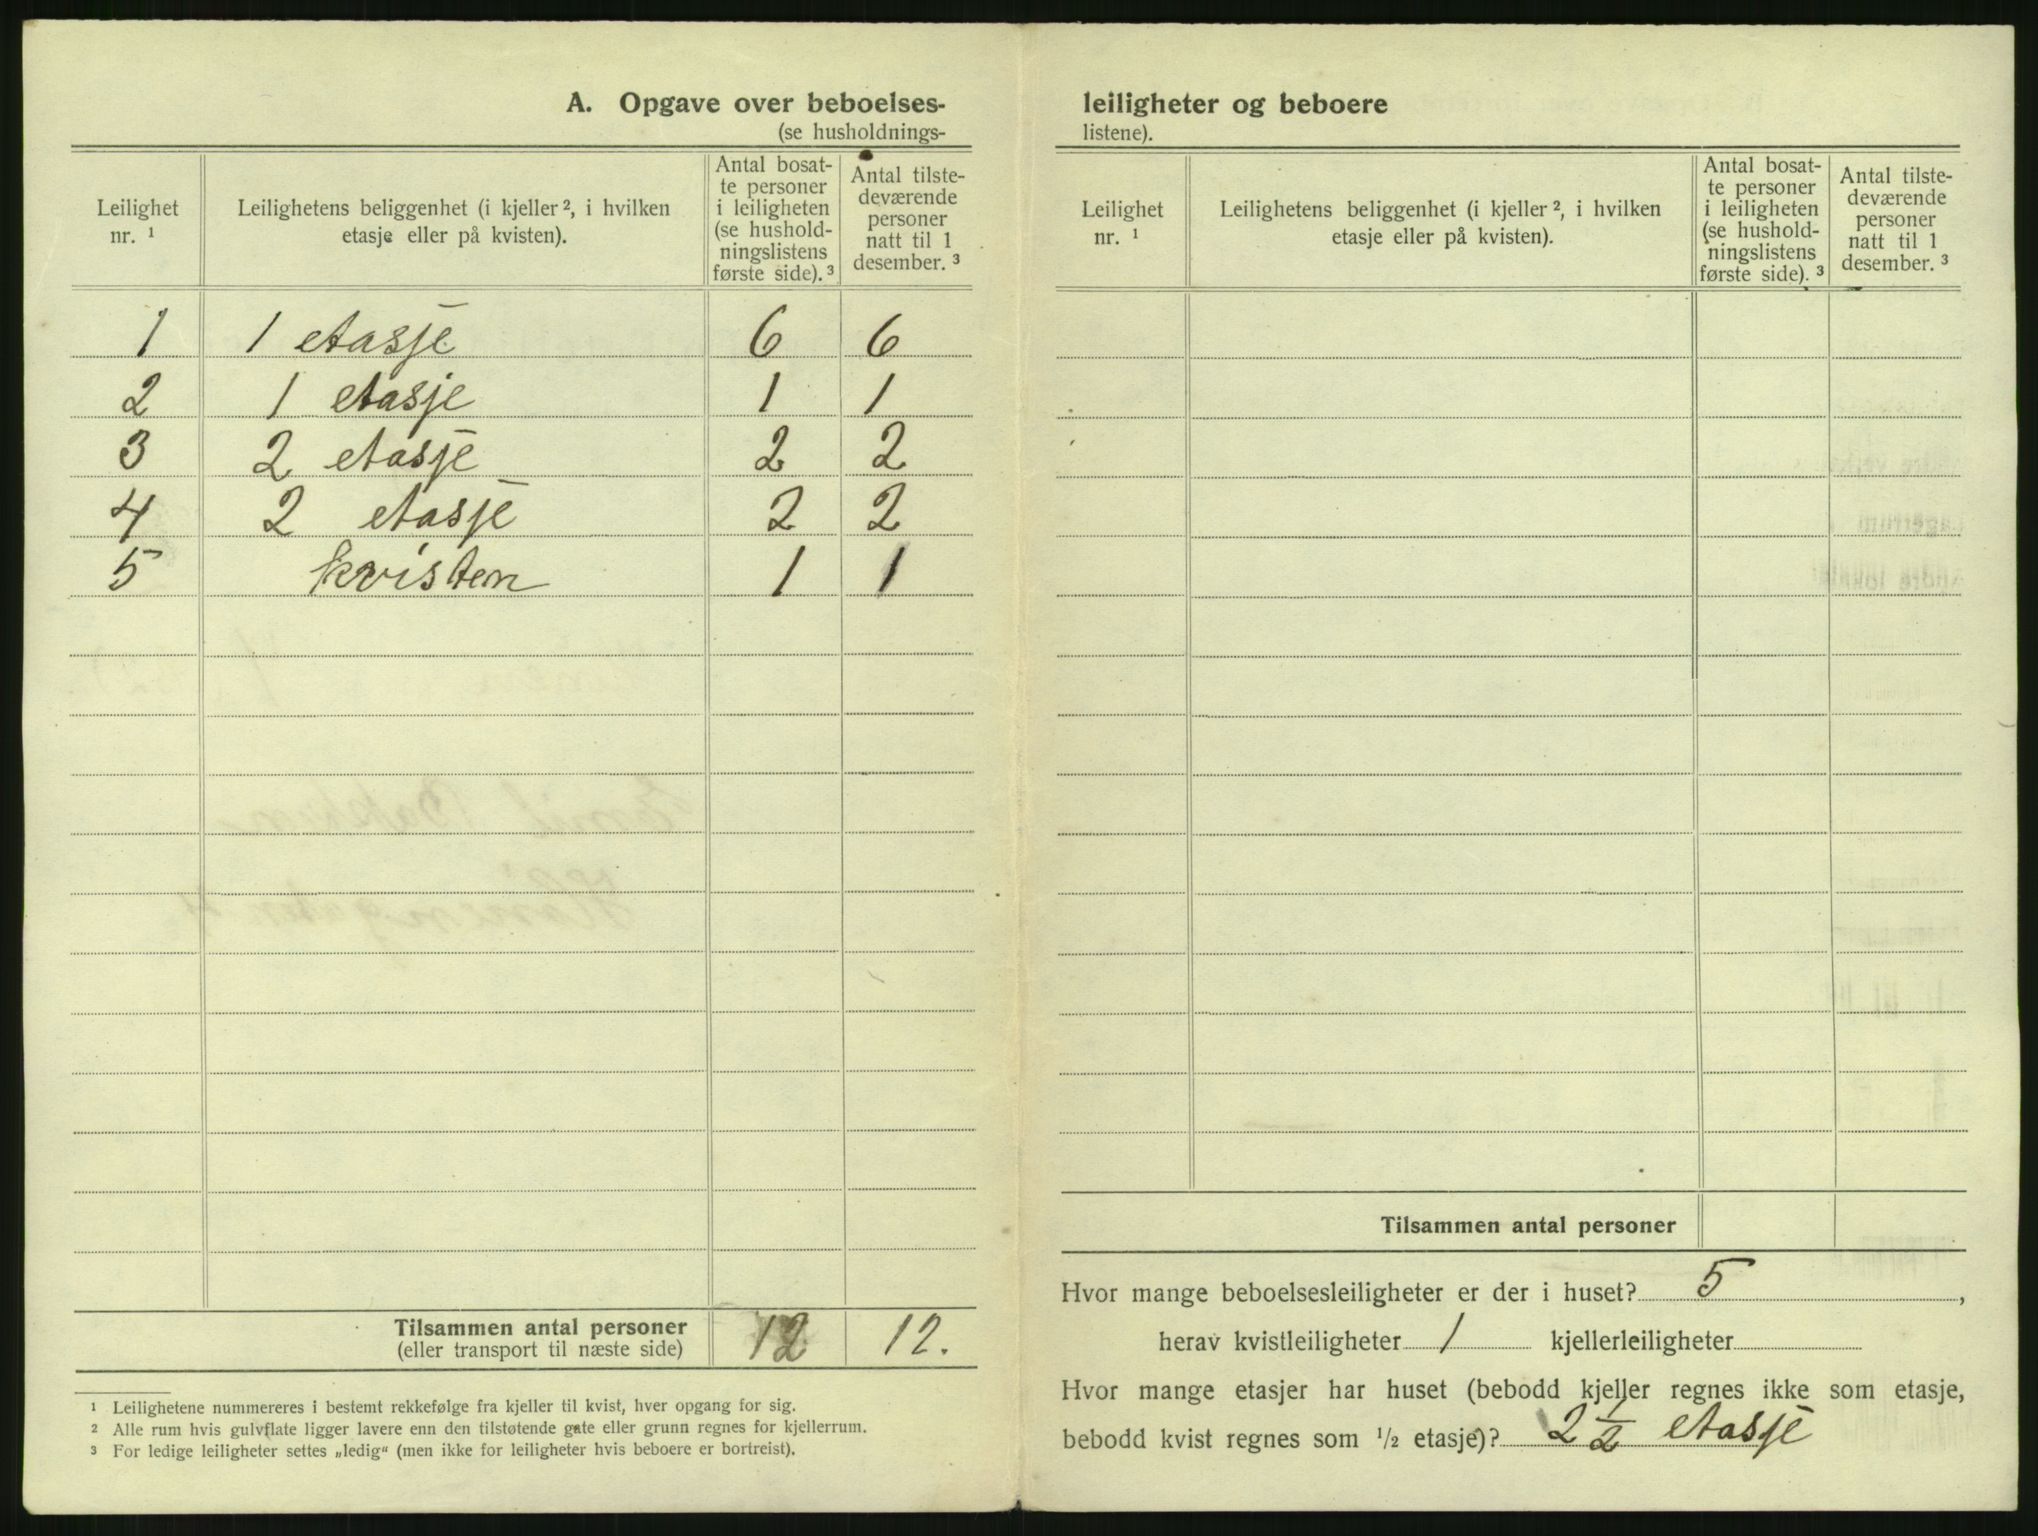 A. Opgave over beboelses-
(se husholdnings-
Leilighet nr. 1
Leilighetens beliggenhet (i kjeller 2, i hvilken etasje eller på kvisten).
Antal bosat-
te personer
i leiligheten
(se hushold-
ningslistens
første side). 3
Antal tilste-
deværende
personer
natt til 1
desember. 3
1 1 etasje 6 6
2 1 etasje 1 1
3 2 etasje 2 2
4 2 etasje 2 2
5 kvisten 1 1
Tilsammen antal personer 12 12.
(eller transport til næste side)
1 Leilighetene nummereres i bestemt rekkefølge fra kjeller til kvist, hver opgang for sig.
2 Alle rum hvis gulvflate ligger lavere enn den tilstøtende gate eller grunn regnes for kjellerrum.
3 For ledige leiligheter settes „ledig“ (men ikke for leiligheter hvis beboere er bortreist).
leiligheter og beboere
listene).
Leilighet nr. 1
Leilighetens beliggenhet (i kjeller 2, i hvilken etasje eller på kvisten).
Antal bosat-
te personer
i leiligheten
(se hushold-
ningslistens
første side). 3
Antal tilste-
deværende
personer
natt til 1
desember. 3
Tilsammen antal personer
Hvor mange beboelsesleiligheter er der i huset? 5,
herav kvistleiligheter 1 kjellerleiligheter
Hvor mange etasjer har huset (bebodd kjeller regnes ikke som etasje,
bebodd kvist regnes som 1/2 etasje)? 2 1/2 etasje